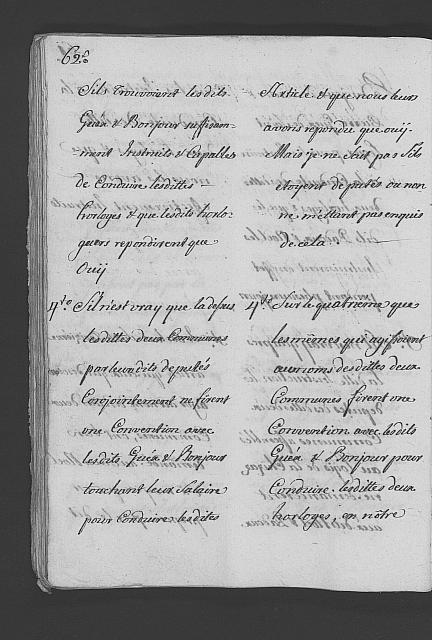 62.
Sils trouvoient lesdits
Guéx & Bonjour suffisam-
ment Instruits & Capables
de Conduire lesdittes
horloges & que lesdits horlo-
guers repondirent que
Ouÿ
4.to S'il n'est vray que la dessus
lesdittes deux Communes
par leurdits députés
Conjointement ne firent
une Convention avec
lesdits Guéx & Bonjour
touchant leur Salaire
pour Conduire lesdites
Article & que nous leurs
avons répondu que ouÿ.
Mais je ne sait pas Sils
étoyent députés ou non
ne m'étant pas enquis
de cela
4.to Sur le quatrieme que
les mêmes qui agissoient
au noms desdittes deux
Communes firent une
Convention avec lesdits
Guéx & Bonjour pour
Conduire lesdittes deux
horloges, en nôtre